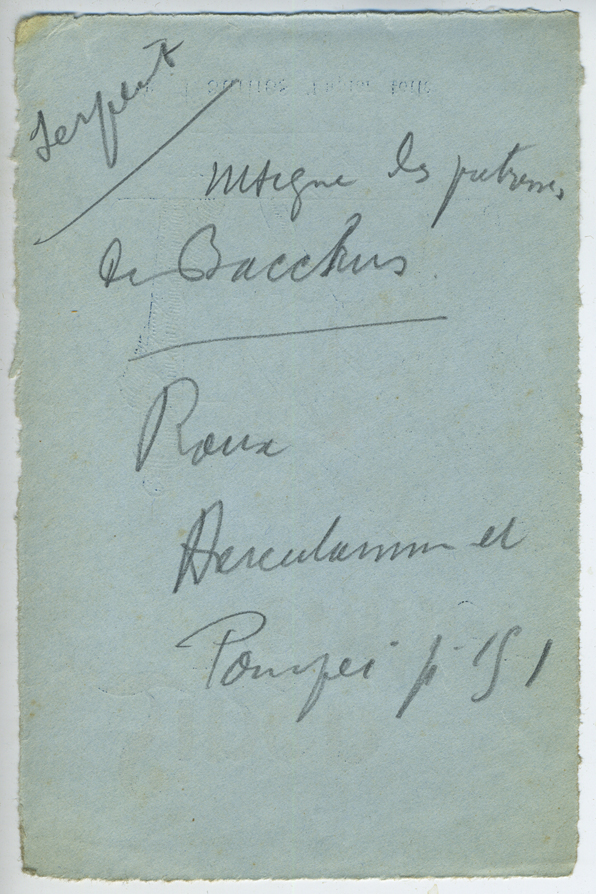 Serpent
insigne les prêtresses
de Bacchus
Roux
Herculanum et
Pompei p. 151